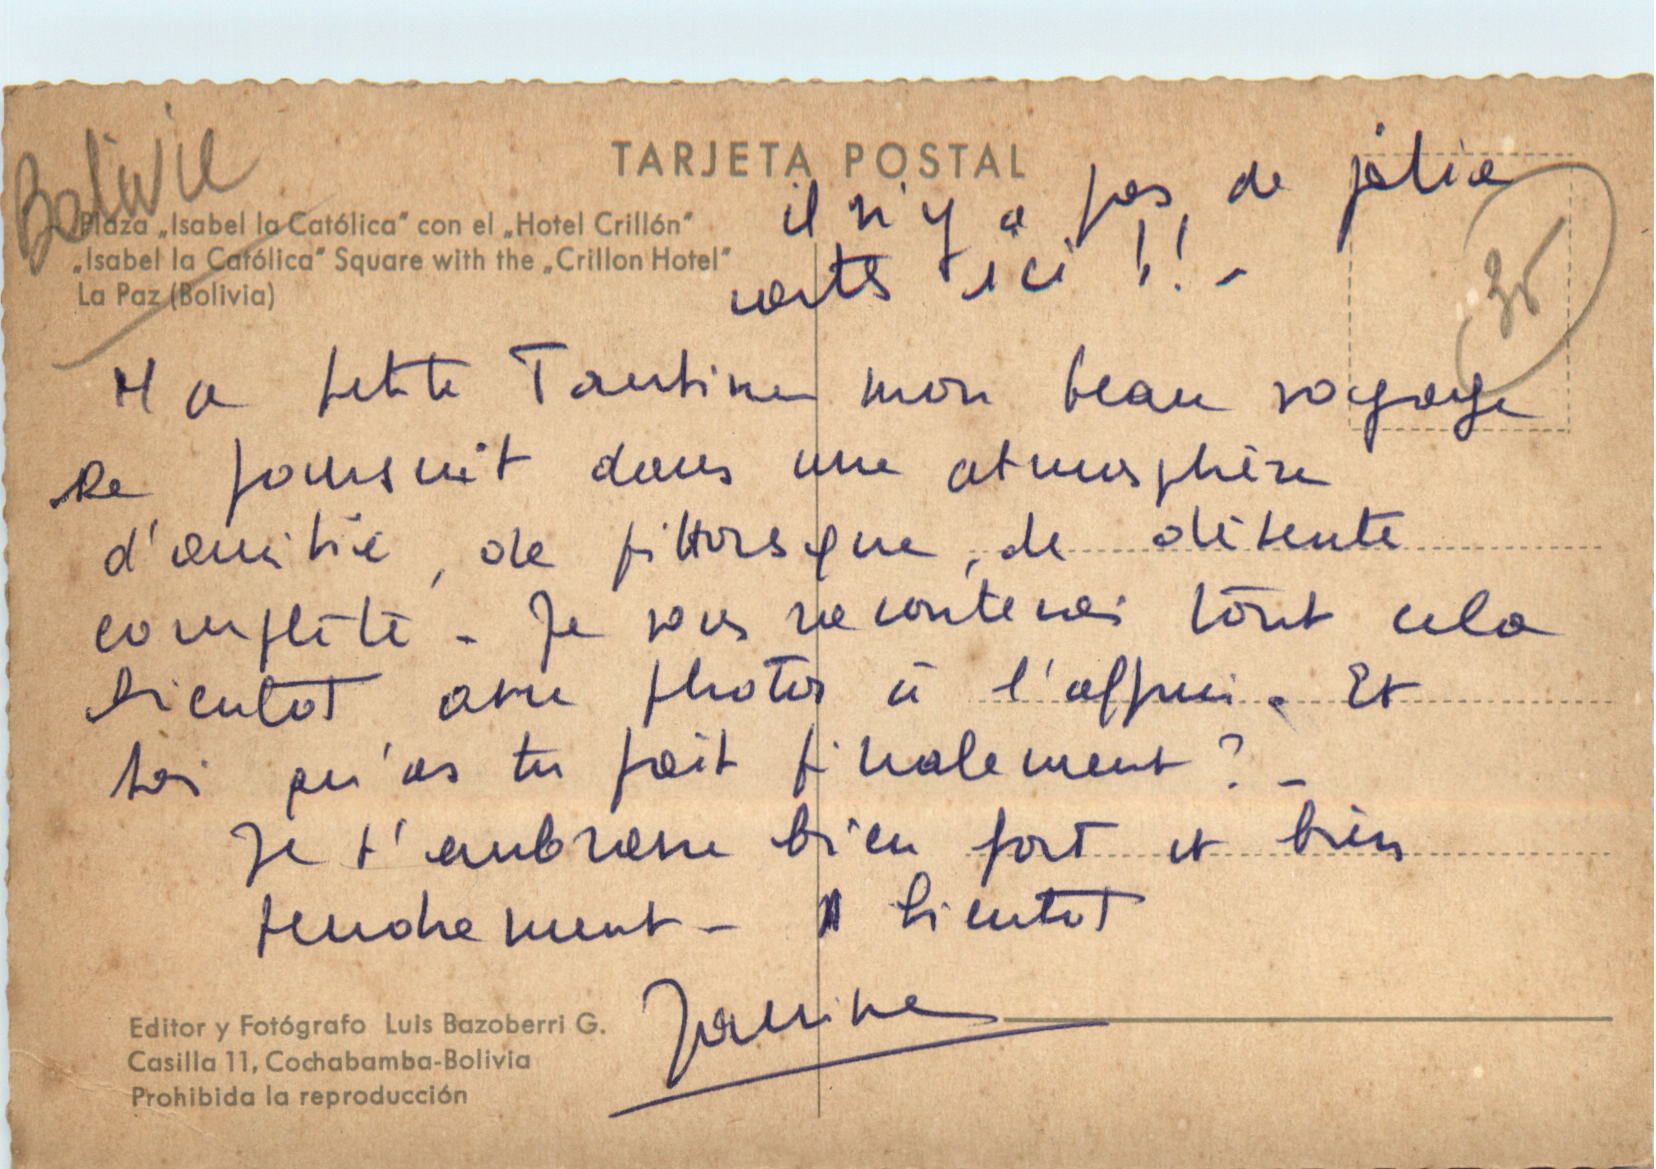 Bolivie
TARJETA POSTAL
Plaza „Isabel la Católica" con el „Hotel Crillón"
„Isabel la Católica" Square with the „Crillon Hotel"
La Paz (Bolivia)
35
il n'y a pas de jolie
carte ici !! -
Ma petite Tantine mon beau voyage
se poursuit dans une atmosphère
d'amitié, de pittoresque, de détente
complète - Je vous raconterai tout cela
bientot avec photos à l'appui. Et
toi qu'as tu fait finalement ? -
Je t'embrasse bien fort et bien
tendrement - A bientot
Janine
Editor y Fotógrafo Luis Bazoberri G.
Casilla 11, Cochabamba-Bolivia
Prohibida la reproducción